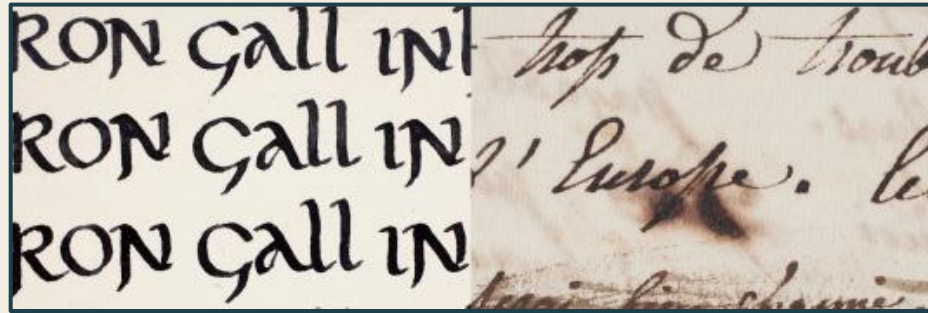 RON Gall IN
RON Gall IN
RON Gall IN
trop de troub
l'Europe. le